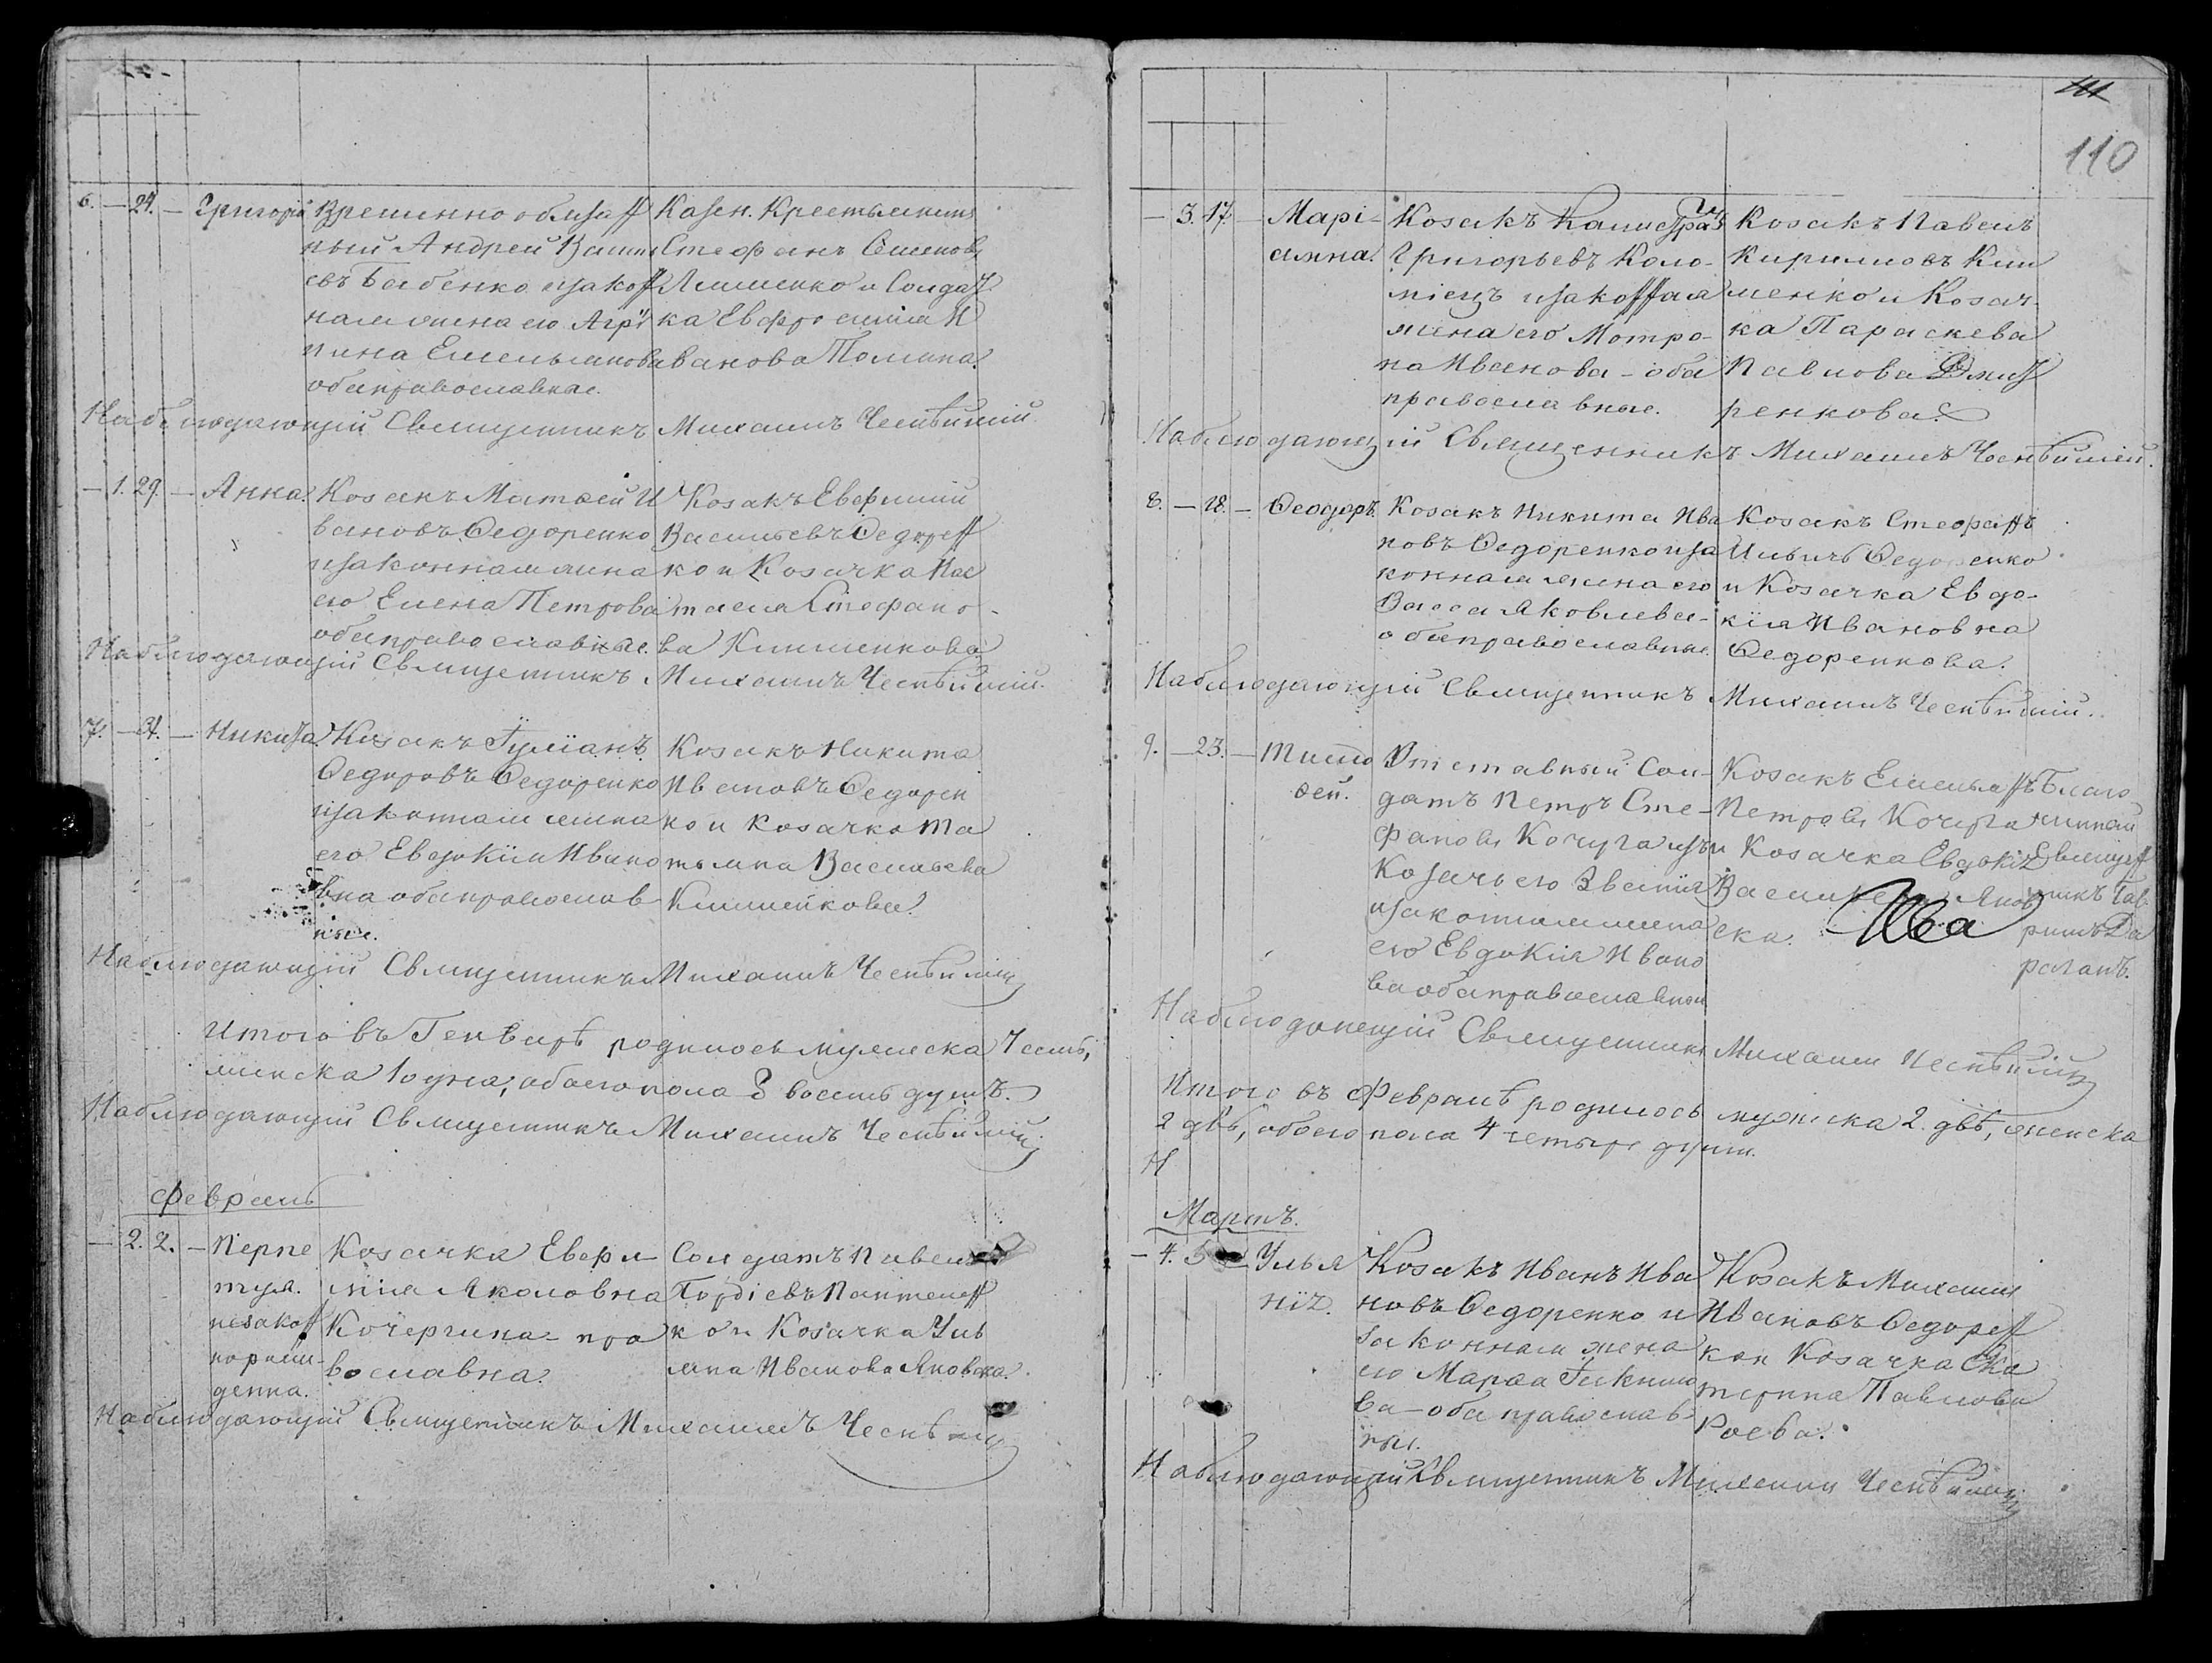 6. — 24. — Григорій Временно обязан
ный Андрей Васил
евъ Бабенко изакон
ная жена его Агрі
пина Емельянова
обаправославные.
Казен. Крестьянинъ
Стефанъ Семеновъ
Лименко и Солдат
ка Евфросинія И
ванова Томина.
Наблюдающій Священникъ Михаилъ
— 1. 29. — Анна.
Козакъ Матвей И
вановъ Ѳедоренко
изаконная жена
его Елена Петрова
обаправославные.
Козакъ Евфимій
Васильевъ Ѳедорен
ко и Козачка Нас
тасія Стефано-
ва Клименкова
Наблюдающій Священникъ Михаилъ
7. — 31. — Никита.
Козакъ Гуліанъ
Ѳедоровъ Ѳедоренко
изаконная жена
его Евдокія Ивано
вна обаправослав
ные.
Козакъ Никита
Ивановъ Ѳедорен
ко и Козачка Та
тьяна Васильева
Клименкова.
Наблюдающій Священникъ Михаилъ
Итого въ Генварѣ родилось мужеска 7 семь,
женска 1 одна, обоего пола 8 восемь душъ.
Наблюдающій Священникъ Михаилъ
Февраль
— 2. 2. — Перпе
туя.
незакон
норож
денна.
Козачка Евфи
мія Яколовна
Кочергина - пра
вославна.
Солдатъ Павелъ
Гордіевъ Пантелен
ко и Козачка Уль
яна Иванова Яновска.
Наблюдающій Священникъ Михаилъ
110
— 3. 17. — Марі-
анна.
Козакъ Калистратъ
Григорьевъ Коло-
міецъ изаконная
жена его Мотро-
на Иванова - оба
православные.
Козакъ Павелъ
Кириловъ Кли
менко и Козач-
ка Параскева
Павлова Дмит
ренкова.
Наблюдающій Священникъ Михаилъ
8. — 18. — Ѳеодоръ.
Козакъ Никита Ива
новъ Ѳедоренко иза
конная жена его
Васса Яковлева -
обаправославные.
Козакъ Стефанъ
Ильичъ Ѳедоренко
и Козачка Евдо-
кія Ивановна
Ѳедоренкова.
Наблюдающій Священникъ Михаилъ
9. — 23. — Тимо
ѳей.
Отставный Сол-
датъ Петръ Сте-
фановъ Кочерга изъ
Козачьего Званія
изаконная жена
его Евдокія Ивано
ва обаправославные
Козакъ Емельянъ
Петровъ Кочерга
и Козачка Евдокія
Васильева Янов
ска.
Благо
чинный
Священ
никъ Гав
риилъ
Наблюдающій Священникъ Михаилъ
Итого въ Февралѣ родилось мужеска 2. двѣ, женска
2 двѣ, обоего пола 4 четыре душъ.
Н
Мартъ.
— 4. 5 — Улья
нія.
Козакъ Иванъ Ива
новъ Ѳедоренко и
законная жена
его Марѳа
ва - оба православ-
ны.
Козакъ Михаилъ
Ивановъ Ѳедорен
ко и Козачка Ека
терина Павлова
Роева.
Наблюдающій Священникъ Михаилъ